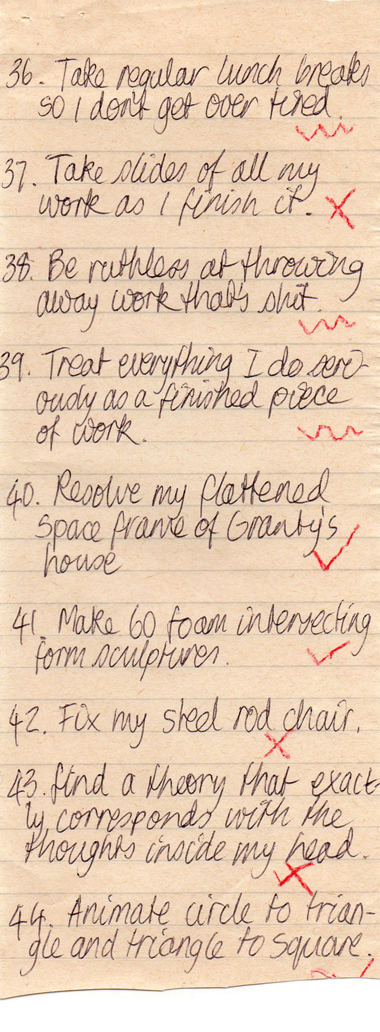 36. Take regular lunch breaks
so I don't get over tired.
37. Take slides of all my
work as I finish it.
38. Be ruthless at throwing
away work that's shit.
39. Treat everything I do seri-
ously as a finished piece
of work.
40. Resolve my flattened
space frame of Granty's
house
41. Make 60 foam intersecting
form sculptures.
42. Fix my steel rod chair.
43. find a theory that exact-
ly corresponds with the
thoughts inside my head.
44. Animate circle to trian-
gle and triangle to square.